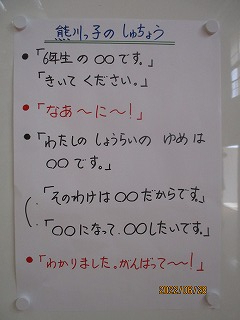 熊川っ子の しゅちょう
●「6年生の ○○です。」
「きいて ください。」
●「なあ〜に〜!」
●「わたしの しょうらいの ゆめは
○○です。」
「そのわけは ○○だからです。」
「○○になって、○○したいです。」
●「わかりました。がんばって〜〜!」
2022/06/20